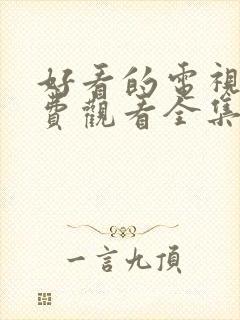 好看的電視
費觀看全集
一言九頂